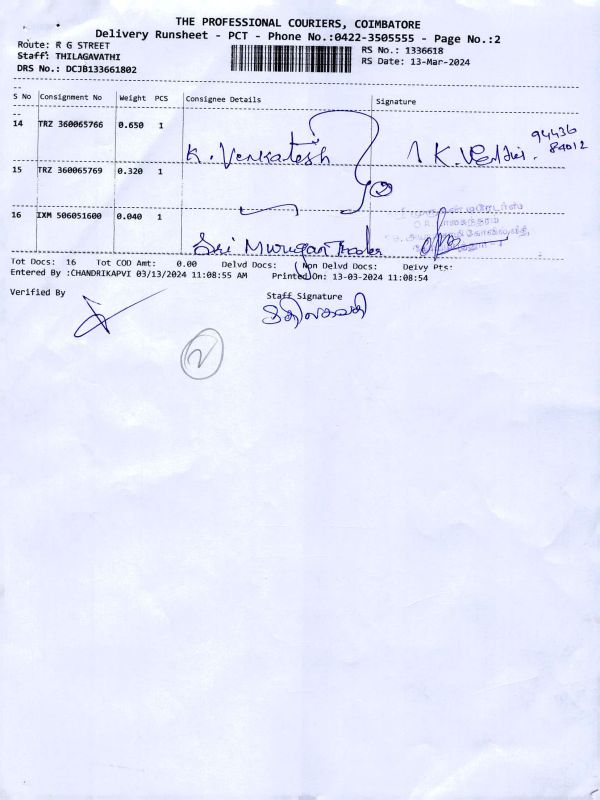 THE PROFESSIONAL COURIERS, COIMBATORE
Delivery Runsheet - PCT - Phone No.:0422-3505555 - Page No.:2
Route: R G STREET
RS No.: 1336618
Staff: THILAGAVATHI
RS Date: 13-Mar-2024
DRS No.: DCJB133661802
S No Consignment No Weight PCS Consignee Details Signature
14 TRZ 360065766 0.650 1
K. Venkatesh K. 94436 84012
15 TRZ 360065769 0.320 1
16 IXM 506051600 0.040 1
Sri Murugan Trader
Tot Docs: 16 Tot COD Amt: 0.00 Delvd Docs: Non Delvd Docs: Deivy Pts:
Entered By :CHANDRIKAPVI 03/13/2024 11:08:55 AM Printed On: 13-03-2024 11:08:54
Verified By Staff Signature
2